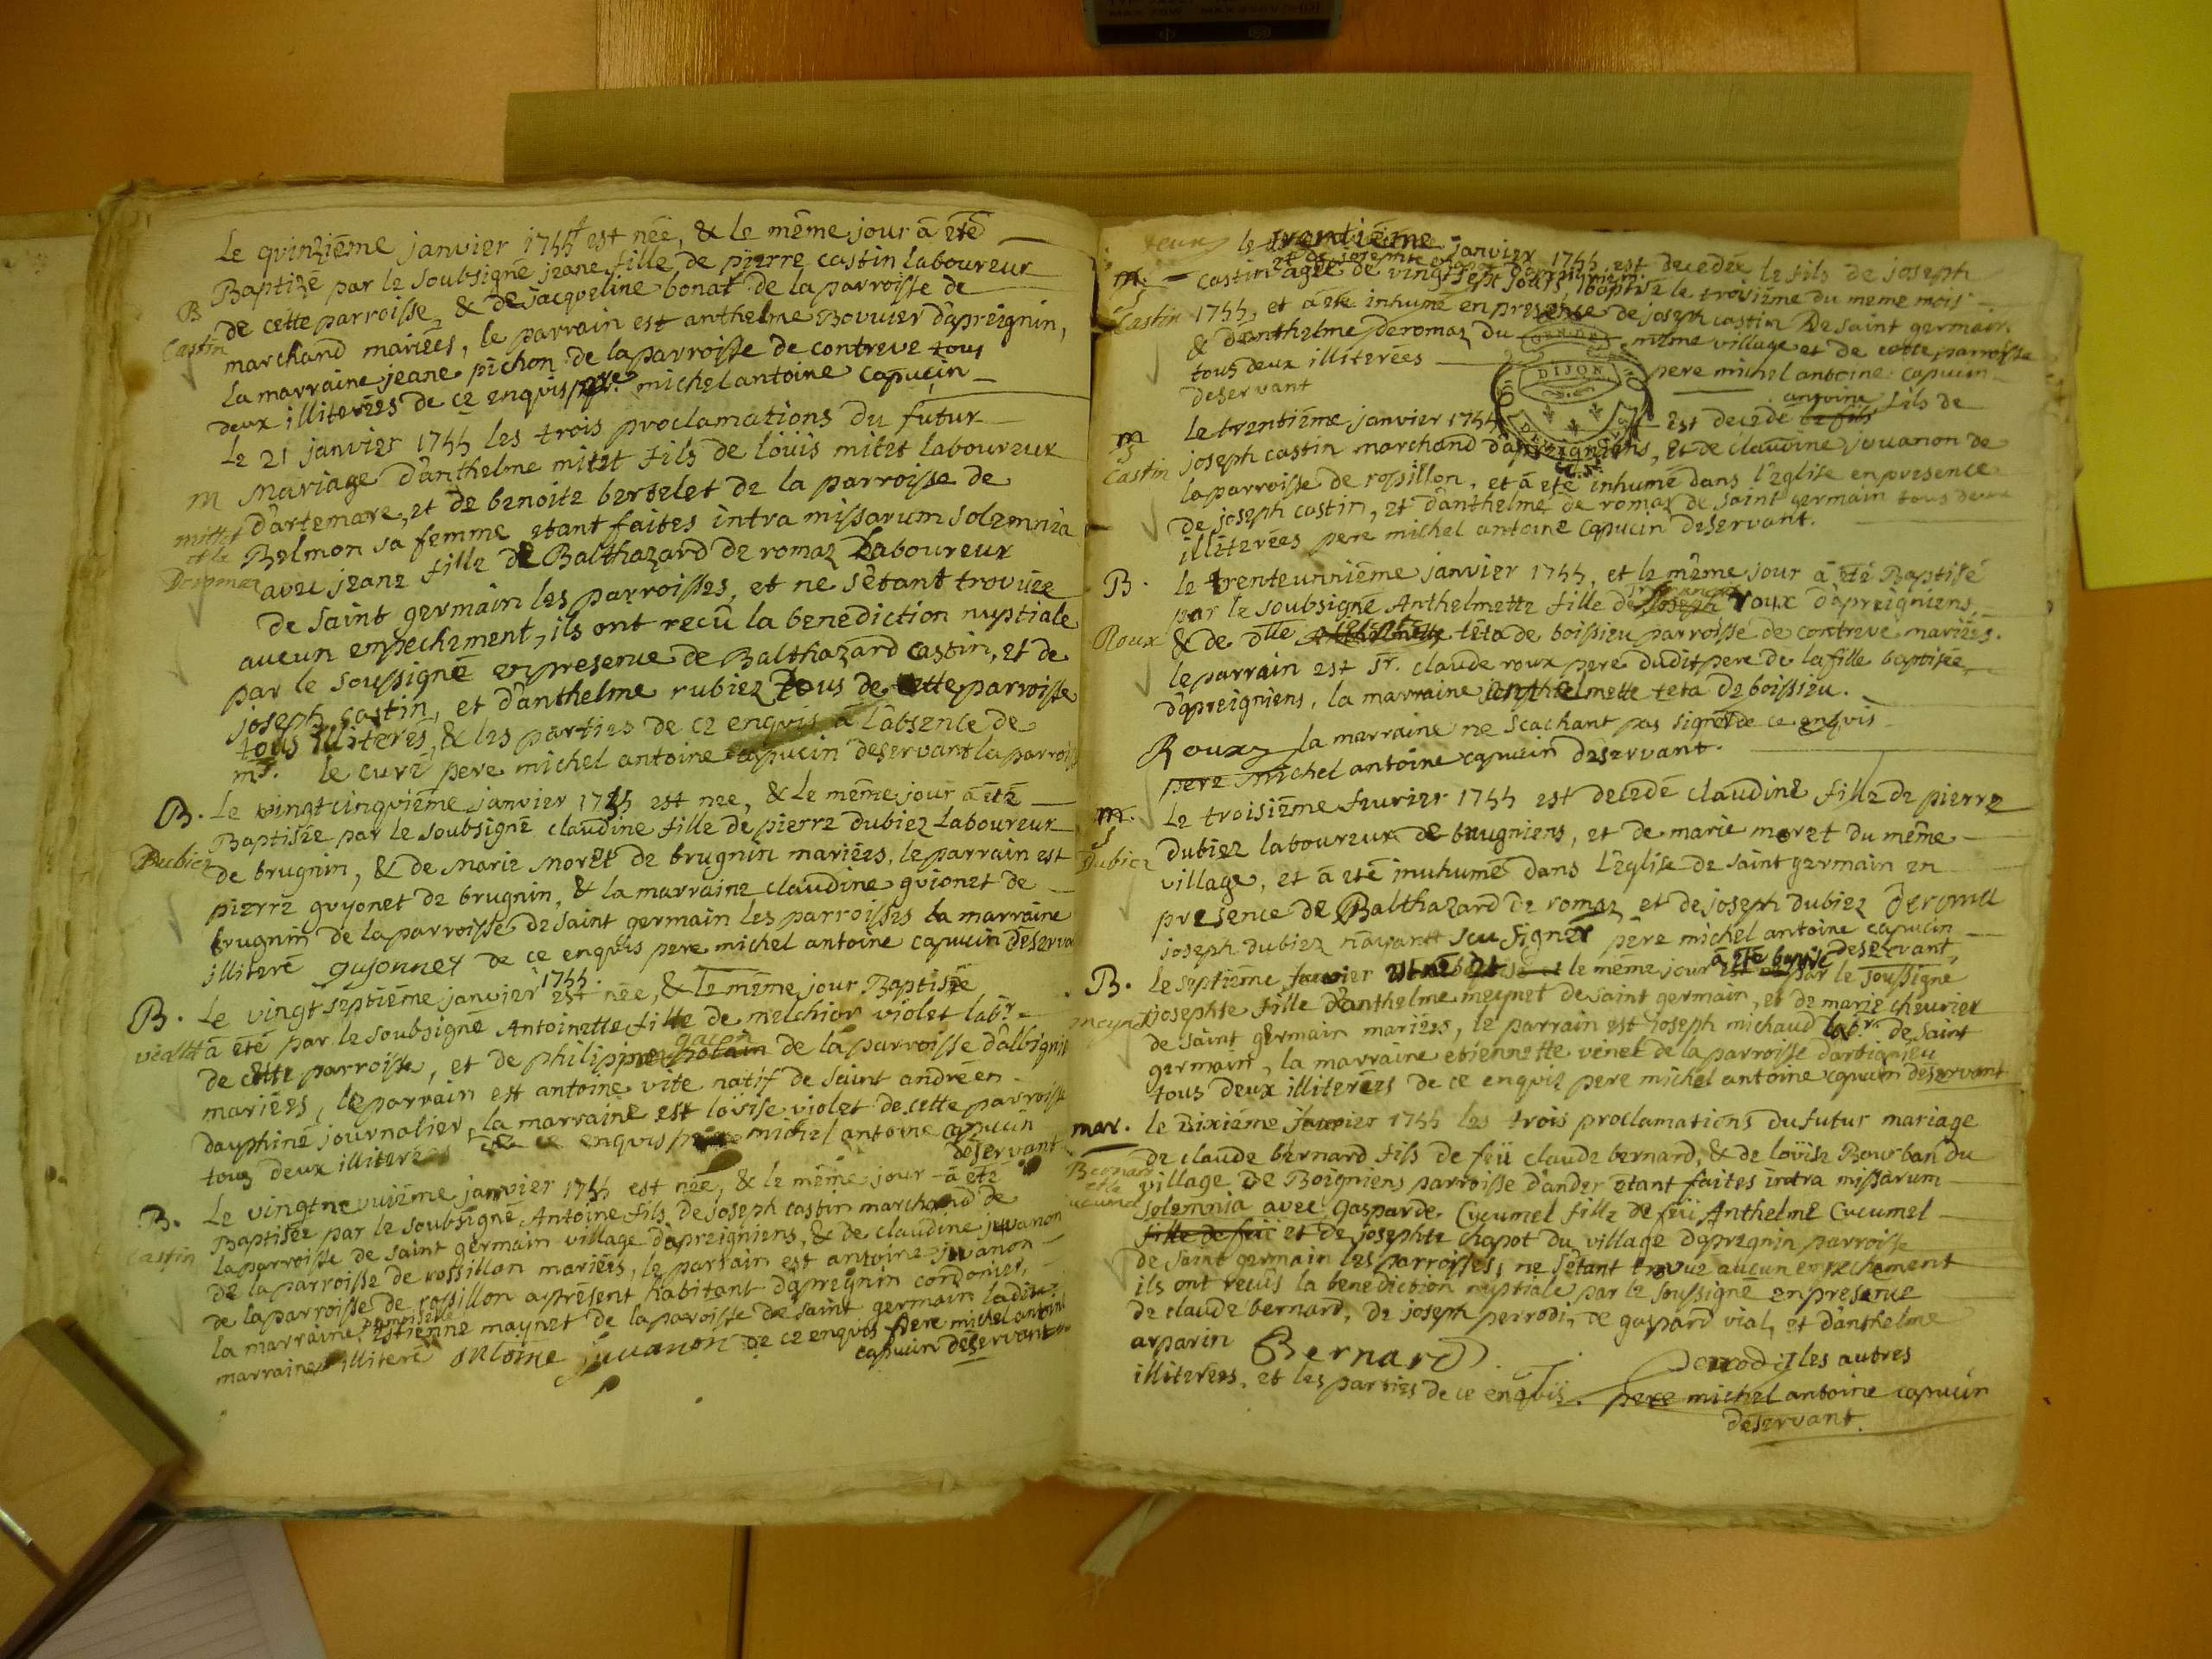 Le qvinziéme janvier 1755 est née, & le méme jour à eté
Baptizé par le soubsigné jeane fille de pierre castin laboureur
B
de cette parroisse, & de jacqueline bonat de la parroisse de
Castin
marchand mariées, le parrain est anthelme Bovuier d'apreignin,
la marraine jeane pichon de la parroisse de contreve tous
deux illiterées de ce enquis pere michel antoine capucin
Le 21 janvier 1755 les trois proclamations du futur
m
Mariage d'anthelme mitet fils de loüis mitet laboureur
d'artemare, et de benoite bertelet de la parroisse de
mittet et la
Belmon sa femme etant faites intra missarum solemnia
avec jeane fille de Balthazard de romaz Laboureur
de saint germain les parroisses, et ne s'etant trouvée
aucun enpechement, ils ont recû la benediction nuptiale
par le soussigné en presence de Balthazard castin, et de
joseph castin, et d'anthelme rubiez tous de cette parroisse
tous illiterés, & les parties de ce enquis à l'absence de
mr. le curé pere michel antoine capucin deservant la parroisse
B. Le vingtcinqviéme janvier 1755 est née, & le méme jour à eté
Baptisée par le soubsigné claudine fille de pierre dubiez Laboureur
Dubiez
de brugnin, & de marie moret de brugnin mariées, le parrain est
pierre guyonet de brugnin, & la marraine claudine guionet de
brugnin de la parroisse de saint germain les parroisses la marraine
illiteré guyonnet de ce enquis pere michel antoine capucin deserva
1755.
B. Le vingt septiéme janvier est née, & le méme jour Baptisée
violet à eté par le soubsigné Antoinette fille de melchior violet labr.
gacon
de cette parroisse, et de philippine de la parroisse d'albignie
mariées, le parrain est antoine vite natif de saint andre en
dauphiné journalier, la marraine est loüise violet de cette parroisse
tous deux illiterées de ce enquis pere michel antoine capucin
deservant
B. Le vingtneuviéme janvier 1755 est née, & le méme jour à eté
Baptisée par le soubsigné Antoine fils de joseph castin marchand de
Castin
la parroisse de saint germain village d'apreigniens, & de claudine juvanon
de la parroisse de rossillon mariées, le parrain est antoine juvanon
de la parroisse de rossillon apresent habitant d'apregnin cordonier,
la marraine demoiselle estienne maynet de la paroisse de saint germain ladite
marraine illiteré antoine juvanon de ce enquis pere michel antoine
capucin deservant
le trentiéme janvier 1755, est decedée le fils de joseph
m. castin agée de vingt sept jours, baptisé le troisiéme du meme mois
Castin 1755, et à eté inhumé en presence de joseph castin De saint germain
& d'anthelme deromaz du méme village et de cette parroisse
tous deux illiterées pere michel antoine capucin
deservant
DIJON
m Le trentiéme janvier 1755 est decedé le fils antoine fils de
Castin joseph castin marchand d'apreigniens, et de claudine jouanon de
la parroisse de rossillon, et à eté inhumé dans l'eglise en presence
de joseph castin, et d'anthelme de romaz de saint germain tous deux
illiterées pere michel antoine capucin deservant.
B. le trenteunniéme janvier 1755, et le méme jour à eté Baptisé
par le soubsigné Anthelmette fille de joseph françois roux d'apreigniens,
Roux & de dlle teta de boissieu parroisse de contreve mariées.
le parrain est sr. claude roux pere dudit pere de la fille baptisée,
d'apreigniens, la marraine anthelmette teta de boissieu.
Roux la marraine ne scachant pas signer de ce enquis
pere michel antoine capucin deservant.
m. Le troisiéme fevrier 1755 est decedé claudine fille de pierre
Dubiez dubiez laboureur de brugniens, et de marie moret du méme
village, et à eté inuhumé dans l'eglise de saint germain en
presence de Balthazard de romaz et de joseph dubiez Deroma
joseph dubiez n'ayant sçu signer pere michel antoine capucin
deservant,
B. Le septiéme fevrier est né et le méme jour à eté baptisé par le soussigné
meynet josephte fille d'anthelme meynet de saint germain, et de marie chevrier
de saint germain mariées, le parrain est joseph michaud labr. de saint
germain, la marraine etiennette venet de la parroisse d'arbignieu
tous deux illiterées de ce enquis pere michel antoine capucin deservant
mar. le Dixiéme fevrier 1755 les trois proclamations du futur mariage
de claude bernard fils de feü claude bernard, & de loüise Bourban du
Bernard et la
village de Boigniens parroisse d'ander etant faites intra missarum
solemnia avec gasparde Cucumel fille de feü Anthelme Cucumel
fille de feü et de josephte chapot du village d'apregnin parroisse
de saint germain les parroisses, ne s'etant trovué aucun enpechement
ils ont recüs la benediction nuptiale par le soussigné en presence
de claude bernard, de joseph perrodi, de gaspard vial, et d'anthelme
arparin Bernard Perrodi les autres
illiterées, et les parties de ce enquis. pere michel antoine capucin
deservant.